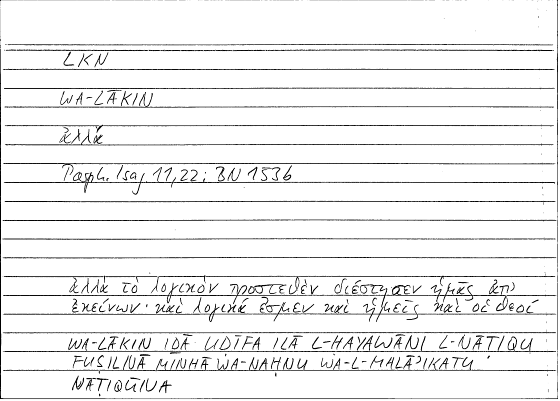 LKN
WA-LĀKIN
ἀλλὰ
Porph. Isag. 11,22; BN 153b
ἀλλὰ τὸ λογικὸν προστεθὲν διέστησεν ἡμᾶς ἀπ'
ἐκείνων· καὶ λογικά ἐσμεν καὶ ἡμεῖς καὶ οἱ θεοί
WA-LĀKIN IḎĀ UḌĪFA ILĀ L-ḤAYAWĀNI L-NĀṬIQU
FUṢILNĀ MINHĀ WA-NAḤNU WA-L-MALĀʾIKATU
NĀṬIQŪNA